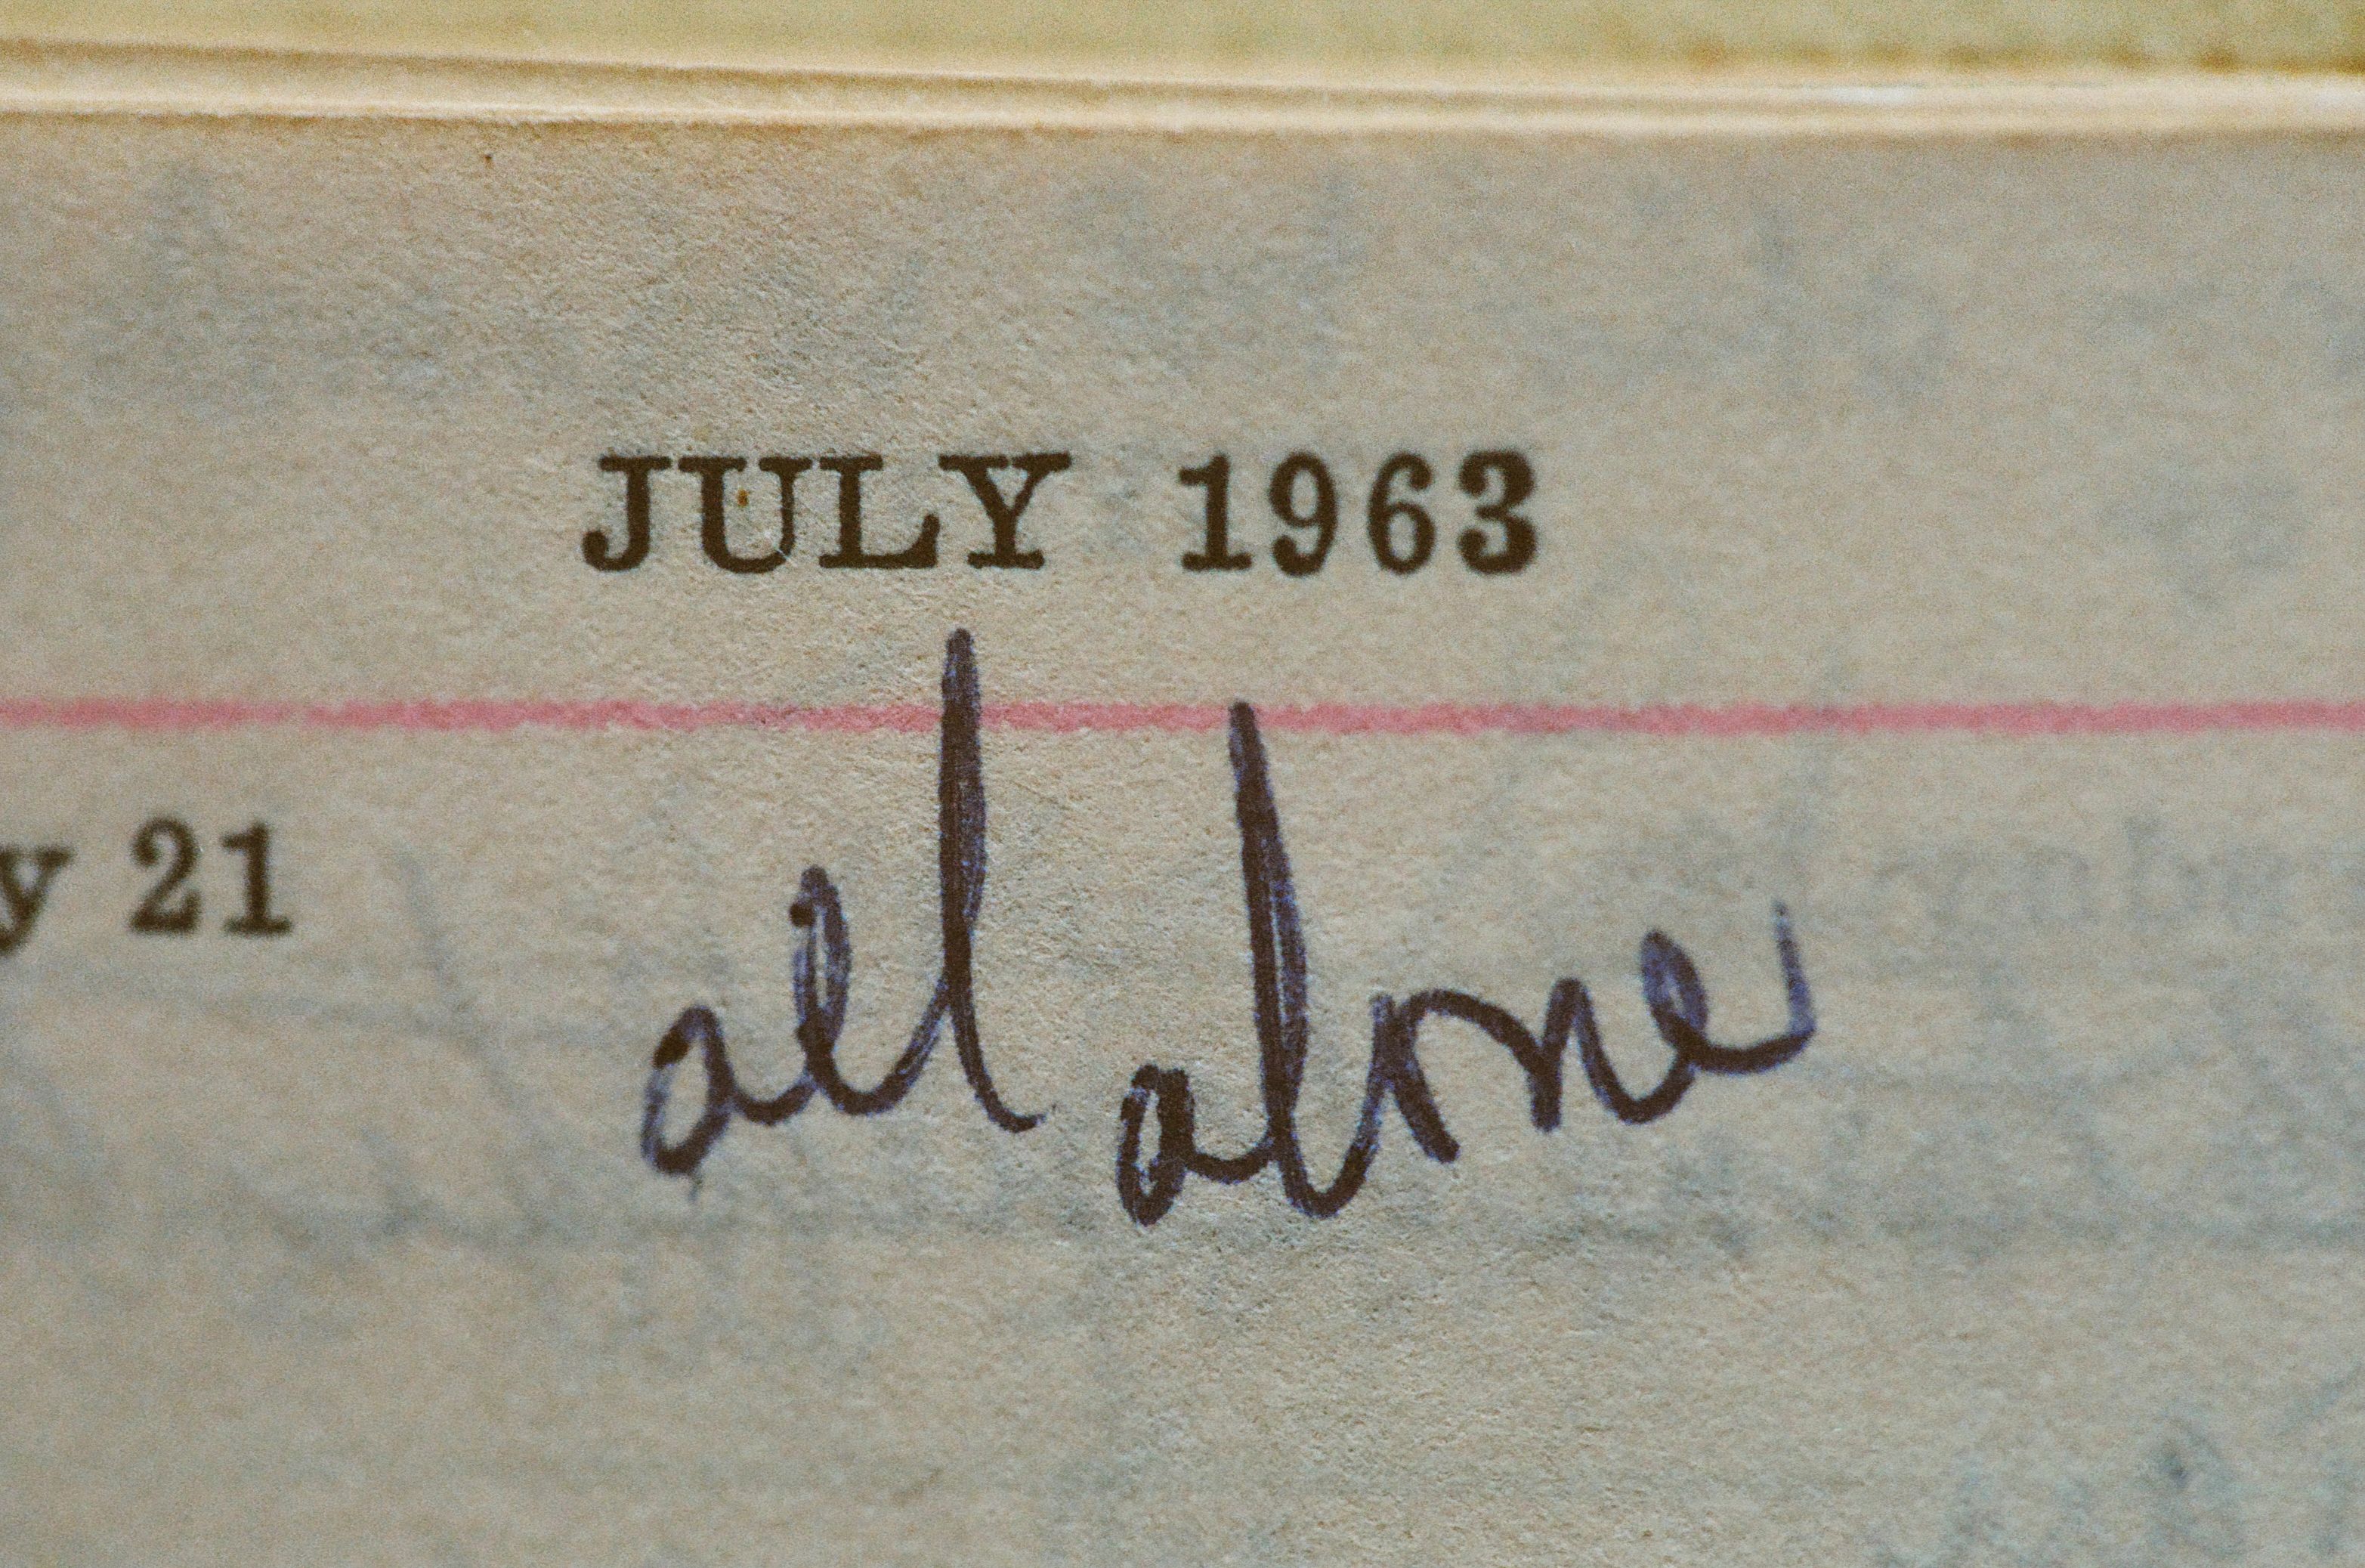 JULY 1963
y 21
all alone